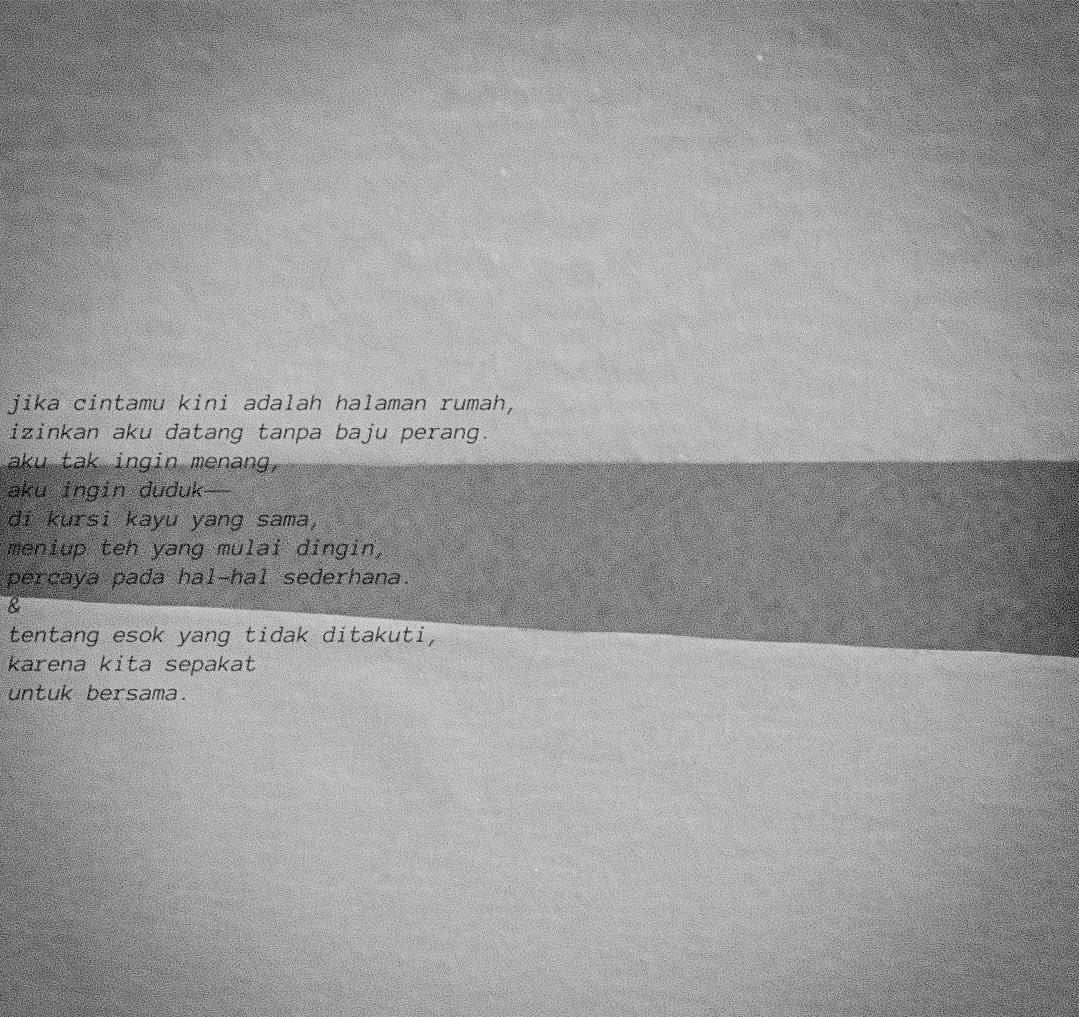 jika cintamu kini adalah halaman rumah,
izinkan aku datang tanpa baju perang.
aku tak ingin menang,
aku ingin duduk——
di kursi kayu yang sama,
meniup teh yang mulai dingin,
percaya pada hal-hal sederhana.
&
tentang esok yang tidak ditakuti,
karena kita sepakat
untuk bersama.